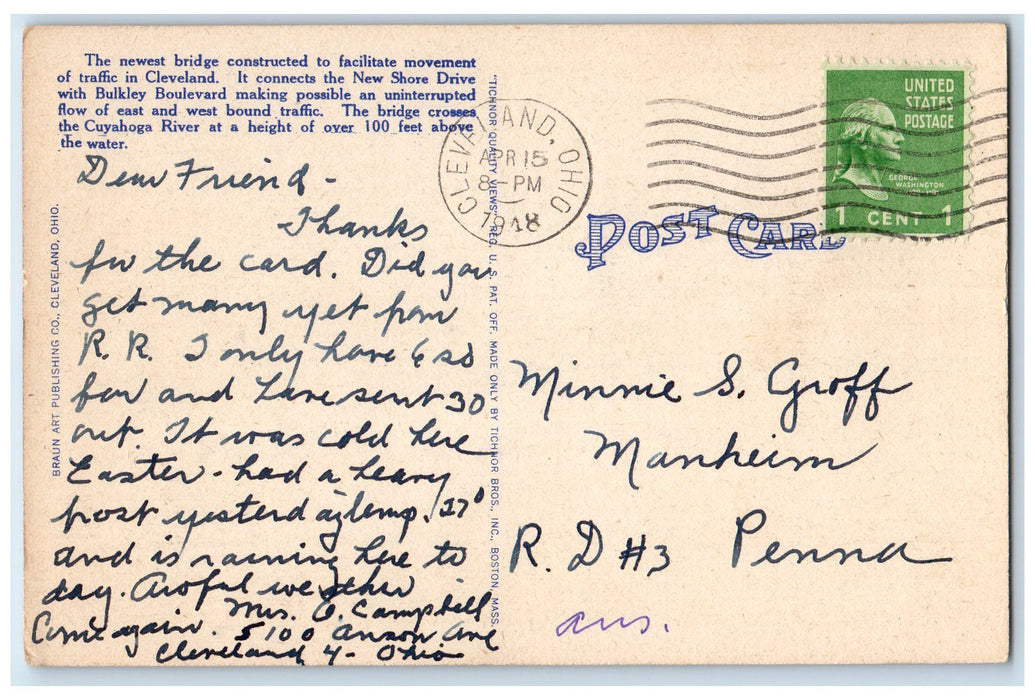 The newest bridge constructed to facilitate movement
of traffic in Cleveland. It connects the New Shore Drive
with Bulkley Boulevard making possible an uninterrupted
flow of east and west bound traffic. The bridge crosses
the Cuyahoga River at a height of over 100 feet above
the water.
Dear Friend -
Thanks
for the card. Did you
get many yet from
R. R. I only have 6 so
far and have sent 30
out. It was cold here
Easter - had a heavy
frost yesterday temp. 27°
and is raining here to
day. Awful weather
Come again. Mrs. O. Campbell
5100 Anson Ave
Cleveland 4 - Ohio
BRAUN ART PUBLISHING CO., CLEVELAND, OHIO.
"TICHNOR QUALITY VIEWS" REG. U. S. PAT. OFF. MADE ONLY BY TICHNOR BROS., INC., BOSTON, MASS.
CLEVELAND, OHIO
APR 15
8 - PM
1948
UNITED
STATES
POSTAGE
GEORGE
WASHINGTON
1 CENT 1
POST CARD
Minnie S. Groff
Manheim
R. D #3 Penna
ans.